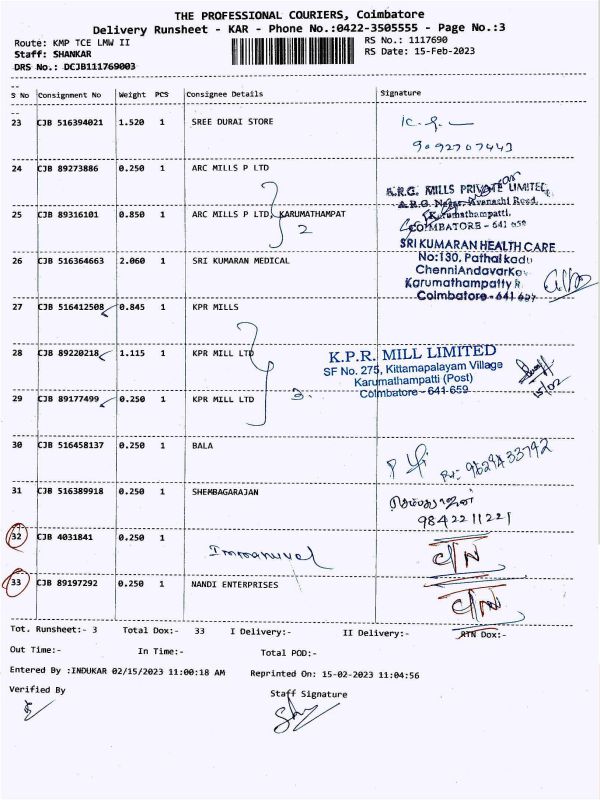 THE PROFESSIONAL COURIERS, Coimbatore
Delivery Runsheet - KAR - Phone No.:0422-3505555 - Page No.:3
Route: KMP TCE LMW II
RS No.: 1117690
Staff: SHANKAR
RS Date: 15-Feb-2023
DRS No.: DCJB111769003
S No Consignment No Weight PCS Consignee Details Signature
23 CJB 516394021 1.520 1 SREE DURAI STORE
9092707443
24 CJB 89273886 0.250 1 ARC MILLS P LTD
A.R.G. MILLS PRIVATE LIMITED,
A.R.G. Nagar, Avanashi Road,
25 CJB 89316101 0.850 1 ARC MILLS P LTD, KARUMATHAMPAT
2
Karumathampatti.
COIMBATORE - 641 659
26 CJB 516364663 2.060 1 SRI KUMARAN MEDICAL
SRI KUMARAN HEALTH CARE
No:130, Pathai kadu
ChenniAndavarKov
Karumathampatty
Coimbatore - 641 659
27 CJB 516412508 0.845 1 KPR MILLS
28 CJB 89220218 1.115 1 KPR MILL LTD
3.
K.P.R. MILL LIMITED
SF No. 275, Kittamapalayam Village
Karumathampatti (Post)
Coimbatore - 641 659
15/02
29 CJB 89177499 0.250 1 KPR MILL LTD
30 CJB 516458137 0.250 1 BALA
31 CJB 516389918 0.250 1 SHEMBAGARAJAN
9842211221
32 CJB 4031841 0.250 1
Immanuvel
C/N
33 CJB 89197292 0.250 1 NANDI ENTERPRISES
C/N
Tot. Runsheet:- 3 Total Dox:- 33 I Delivery:- II Delivery:- RTN Dox:-
Out Time:- In Time:- Total POD:-
Entered By :INDUKAR 02/15/2023 11:00:18 AM Reprinted On: 15-02-2023 11:04:56
Verified By
Staff Signature